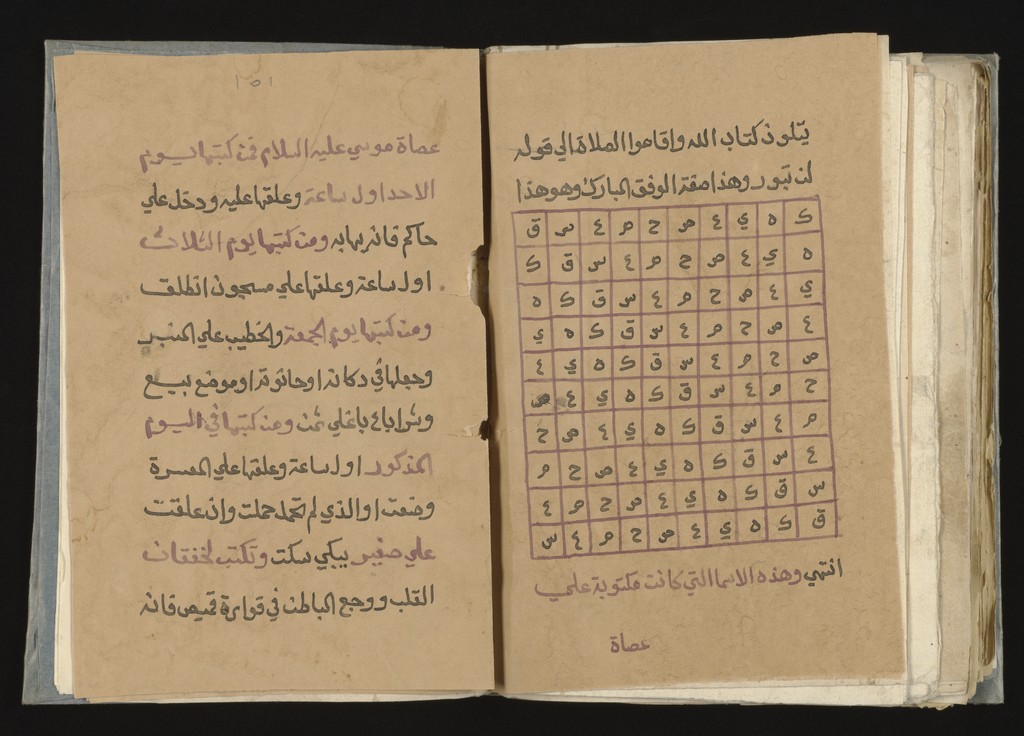 يتلون كتاب الله واقاموا الصلاة الي قوله
لن تبور وهذا صفة الوفق المبارك وهو هذا
ك ه ي ع ص ح م ع س ق
ه ي ع ص ح م ع س ق ك
ي ع ص ح م ع س ق ك ه
ع ص ح م ع س ق ك ه ي
ص ح م ع س ق ك ه ي ع
ح م ع س ق ك ه ي ع ص
م ع س ق ك ه ي ع ص ح
ع س ق ك ه ي ع ص ح م
س ق ك ه ي ع ص ح م ع
ق ك ه ي ع ص ح م ع س
انتهي وهذه الاسما التي كانت مكتوبة علي
عصاة
١٥١
عصاة موسي عليه السلام فمن كتبها يوم
الاحد اول ساعة وعلقها عليه ودخل علي
حاكم فانه يهابه ومن كتبها يوم الثلاث
اول ساعة وعلقها علي مسجون انطلق
ومن كتبها يوم الجمعة والخطيب علي المنبر
وجعلها في دكانه او حانوته او موضع بيع
وشرا باع باغلي ثمن ومن كتبها في اليوم
المذكور اول ساعة وعلقها علي المعسرة
وضعت او الذي لم تحمل حملت وان علقت
علي صغير يبكي سكت وتكتب لخفقان
القلب ووجع الباطن في قوارة قميص فانه